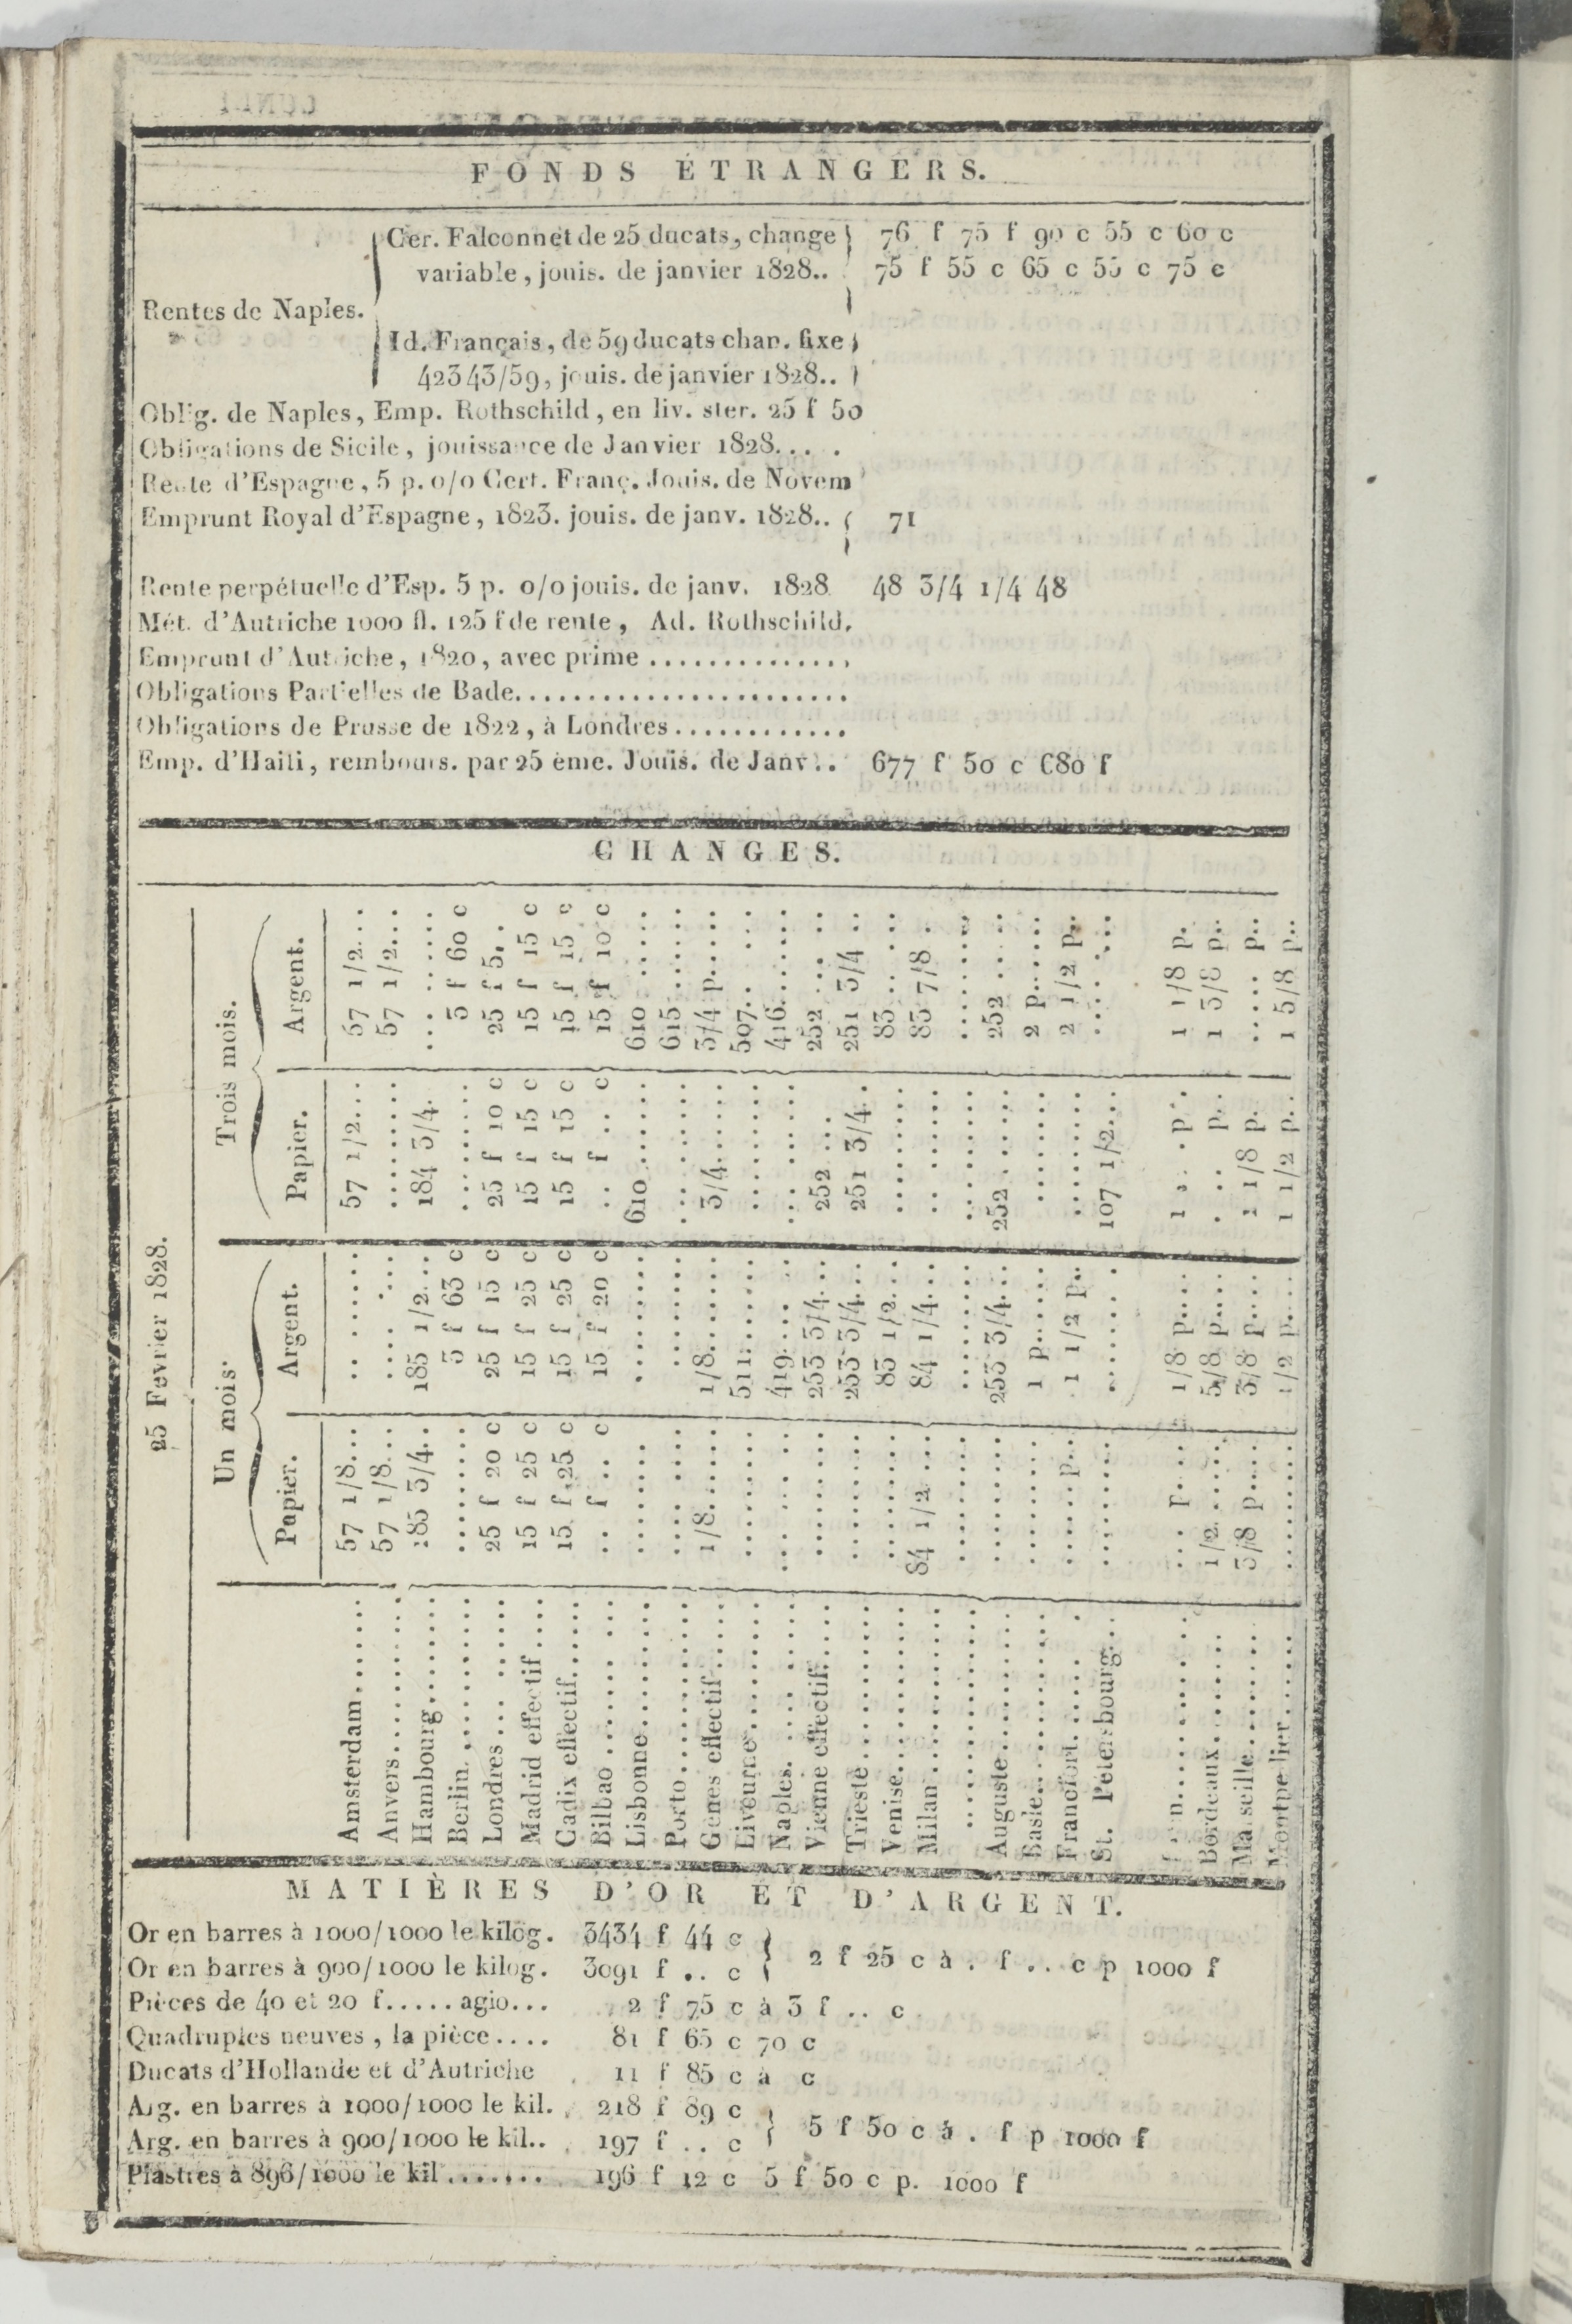 FONDS ÉTRANGERS.
Rentes de Naples.
Cer. Falconnet de 25 ducats, change 76 f 75 f 90 c 55 c 60 c
variable, jouis. de janvier 1828.. 75 f 55 c 65 c 55 c 75 c
Id. Français, de 59 ducats chan. fixe
423 43/59, jouis. de janvier 1828..
Oblig. de Naples, Emp. Rothschild, en liv. ster. 25 f 50
Obligations de Sicile, jouissance de Janvier 1828....
Rente d'Espagne, 5 p. o/o Cert. Franç. Jouis. de Novem
Emprunt Royal d'Espagne, 1823. jouis. de janv. 1828.. 71
Rente perpétuelle d'Esp. 5 p. o/o jouis. de janv. 1828 48 3/4 1/4 48
Mét. d'Autriche 1000 fl. 125 f de rente, Ad. Rothschild.
Emprunt d'Autriche, 1820, avec prime ..............
Obligations Partielles de Bade.......................
Obligations de Prusse de 1822, à Londres............
Emp. d'Haiti, rembours. par 25 ème. Jouis. de Janv... 677 f 50 c 680 f
CHANGES.
25 Fevrier 1828.
Un mois. Trois mois.
Papier. Argent. Papier. Argent.
Amsterdam....... 57 1/8... ........ 57 1/2... 57 1/2...
Anvers.......... 57 1/8... ........ ........ 57 1/2...
Hambourg........ 185 3/4.. 185 1/2... 184 3/4. ........
Berlin.......... ........ 3 f 63 c ........ 3 f 60 c
Londres... ...... 25 f 20 c 25 f 15 c 25 f 10 c 25 f 5..
Madrid effectif .... 15 f 25 c 15 f 25 c 15 f 15 c 15 f 15 c
Cadix effectif...... 15 f 25 c 15 f 25 c 15 f 15 c 15 f 15 c
Bilbao ......... .. f .. c 15 f 20 c .. f .. c 15 f 10 c
Lisbonne........ ........ ........ 610 ...... 610 ......
Porto........... ........ ........ ........ 615 ......
Gènes effectif..... 1/8....... 1/8....... 3/4....... 3/4 p.....
Livourne........ ........ 511...... ........ 507.. ..
Naples.......... ........ 419.... .. ........ 416......
Vienne effectif..... ........ 253 3/4... 252 .... 252 ... ..
Trieste.......... ........ 253 3/4... 251 3/4.. 251 3/4 ..
Venise.......... ........ 83 1/2... ........ 83.. ...
Milan .......... 84 1/2 ... 84 1/4... ........ 83 7/8 .
........ ........ ........ ........ ........
Auguste......... ........ 253 3/4... 252 ...... 252 ....
Basle........... ........ 1 p..... ........ 2 p......
Francfort....... .......p... 1 1/2 p.. ........ 2 1/2 p..
St. Petersbourg... ........ ........ 107 1/2... ........
........ ... p.... 1/8 p.... 1 . . p. 1 1/8 p.
Bordeaux........ 1/2 ..... 5/8 p.... . .. p.. 1 3/8 p..
Marseille........ 3/8 p.... 3/8 p.... 1 1/8 p. ..... p..
Montpellier....... ........ 1/2 p.... 1 1/2 p.. 1 5/8 p..
MATIÈRES D'OR ET D'ARGENT.
Or en barres à 1000/1000 le kilog. 3434 f 44 c
Or en barres à 900/1000 le kilog. 3091 f .. c 2 f 25 c à . f .. c p 1000 f
Pièces de 40 et 20 f..... agio... 2 f 75 c à 3 f .. c
Quadruples neuves, la pièce.... 81 f 65 c 70 c
Ducats d'Hollande et d'Autriche 11 f 85 c à c
Arg. en barres à 1000/1000 le kil. 218 f 89 c
Arg. en barres à 900/1000 le kil.. 197 f .. c 5 f 50 c à . f p 1000 f
Piastres à 896/1000 le kil ....... 196 f 12 c 5 f 50 c p. 1000 f